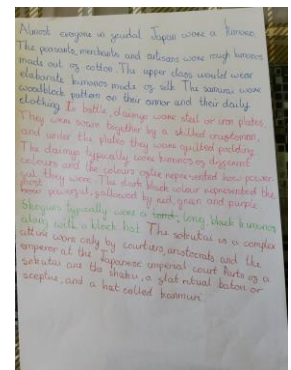 Almost everyone in feudal Japan wore a kimono.
The peasants, merchants and artisans wore rough kimonos
made out of cotton. The upper class would wear
elaborate kimonos made of silk. The samurai wore
woodblock pattern on their armor and their daily
clothing. In battle, daimyo wore steel or iron plates.
They were sown together by a skilled craftsmen,
and under the plates they wore quilted padding.
The daimyo typically wore kimonos of different
colours and the colours often represented how power-
ful they were. The dark black colour represented the
most powerful, followed by red, green and purple.
Shoguns typically wore a long, black kimonos
along with a black hat. The sokutai is a complex
attire worn only by courtiers, aristocrats and the
emperor at the Japanese emperial court. Parts of a
sokutai are the shaku, a flat ritual baton or
sceptre, and a hat called kanmuri.